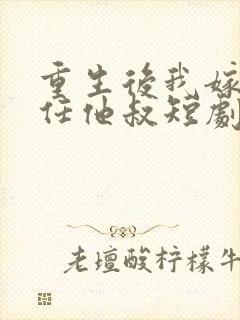 重生後我嫁
任他叔短劇
老壇酸柠檬牛